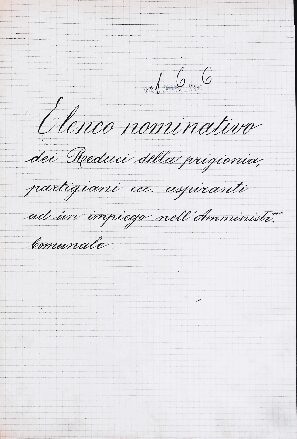 166
Elenco nominativo
dei Reduci della prigionia,
partigiani ecc. aspiranti
ad un impiego nell'Amministr.
Comunale